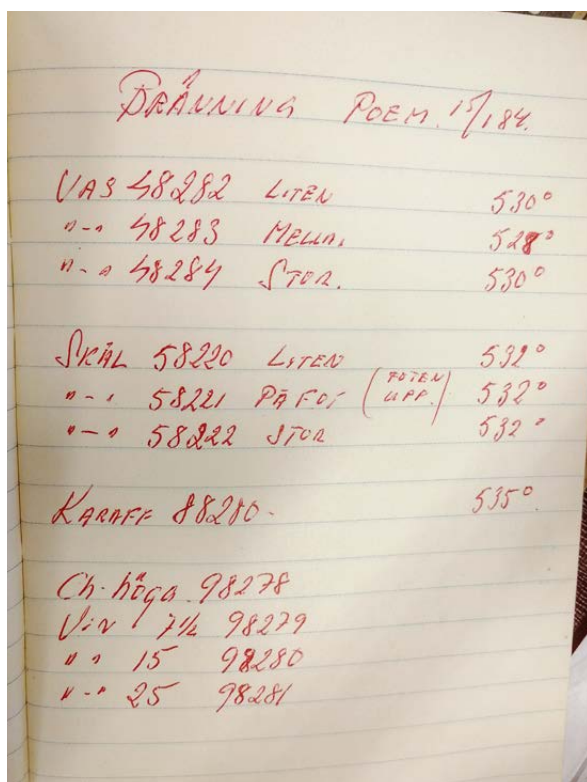 BRÄNNING POEM. 15/1 84.
VAS 48282 LITEN 530°
"-" 48283 MELLA. 528°
"-" 48284 STOR. 530°
SKÅL 58220 LITEN 532°
"-" 58221 PÅ FOT (FOTEN UPP.) 532°
"-" 58222 STOR 532°
KARAFF 88280- 535°
Ch. höga 98278
Vin 7½ 98279
" " 15 98280
"-" 25 98281